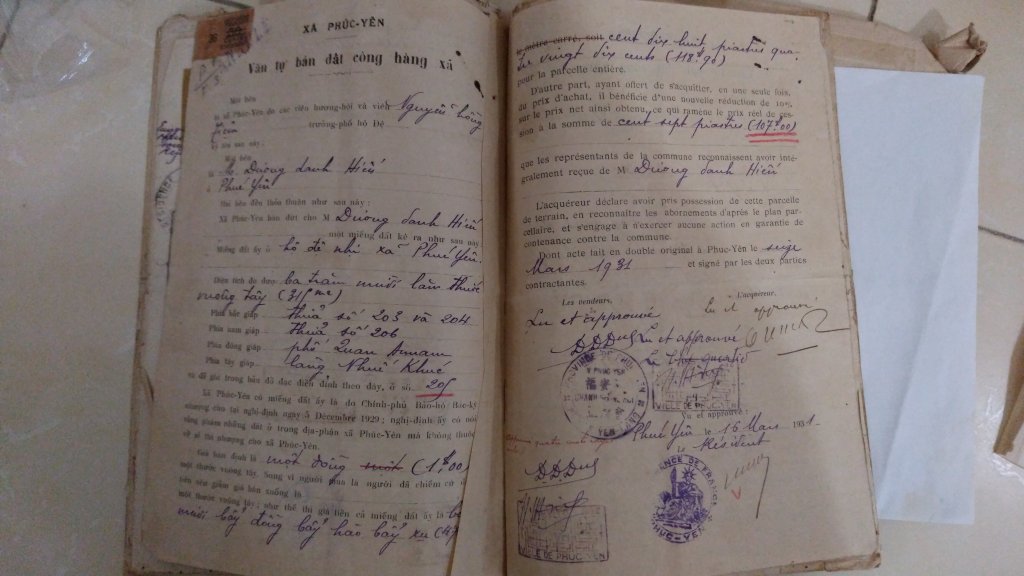 XÃ PHÚC-YÊN
Văn tự bán đất công hàng xã
Một bên
xã Phúc-Yên do các viên hương-hội và viên Nguyễn Hồng
trưởng-phố hồ Đệ
Một bên
M Dương danh Hiến
ở Phúc Yên
Hai bên đều thỏa-thuận như sau này :
Xã Phúc-Yên bán đứt cho M Dương danh Hiến
một miếng đất kê ra như sau này
Miếng đất ấy ở hồ đệ nhị xã Phúc Yên.
Diện tích đo được ba trăm mười lăm thước
vuông tây (315 m2)
Phía bắc giáp thửa số 203 và 204
Phía nam giáp thửa số 206
Phía đông giáp phố Quan Annam
Phía tây giáp làng Nhuế Khúc
và đã ghi trong bản đồ đạc điền đính theo đây, ở số 205
Xã Phúc-Yên có miếng đất ấy là do Chính-phủ Bảo-hộ Bắc-kỳ
nhượng cho tại nghị-định ngày 5 Décembre 1929 ; nghị-định ấy có nói
rằng gồm những đất ở trong địa-phận xã Phúc-Yên mà không thuộc
về ai thì nhượng cho xã Phúc-Yên.
Giá bán định là một đồng một (1$00)
một thước vuông tây. Song vì người mua là người đã chiếm cứ
nên giảm giá bán xuống là
một thước vuông tây ; như thế thì giá tiền cả miếng đất ấy là
mươi bẩy đồng bẩy hào bẩy xu
le mètre carré, soit cent dix huit piastres qua
tre vingt dix cents (118$90)
pour la parcelle entière.
D'autre part, ayant offert de s'acquitter, en une seule fois,
du prix d'achat, il bénéficie d'une nouvelle réduction de 10%
sur le prix net ainsi obtenu, ce qui ramène le prix réel de ces-
sion à la somme de cent sept piastres (107$00)
que les représentants de la commune reconnaissent avoir inté-
gralement reçue de M Dương danh Hiến
L'acquéreur déclare avoir pris possession de cette parcelle
de terrain, en reconnaître les abornements d'après le plan par-
cellaire, et s'engage à n'exercer aucune action en garantie de
contenance contre la commune.
Dont acte fait en double original à Phuc-Yên le seize
Mars 1931 et signé par les deux parties
contractantes.
Les vendeurs, L'acquéreur.
Lu et approuvé Lu et approuvé
DDDuc Lu et approuvé
VILLE DE PHUC-YEN
Vu et approuvé :
Phuc Yên le 16 Mars 1931
Résident
DDDuc
VILLE DE PHUC-YEN